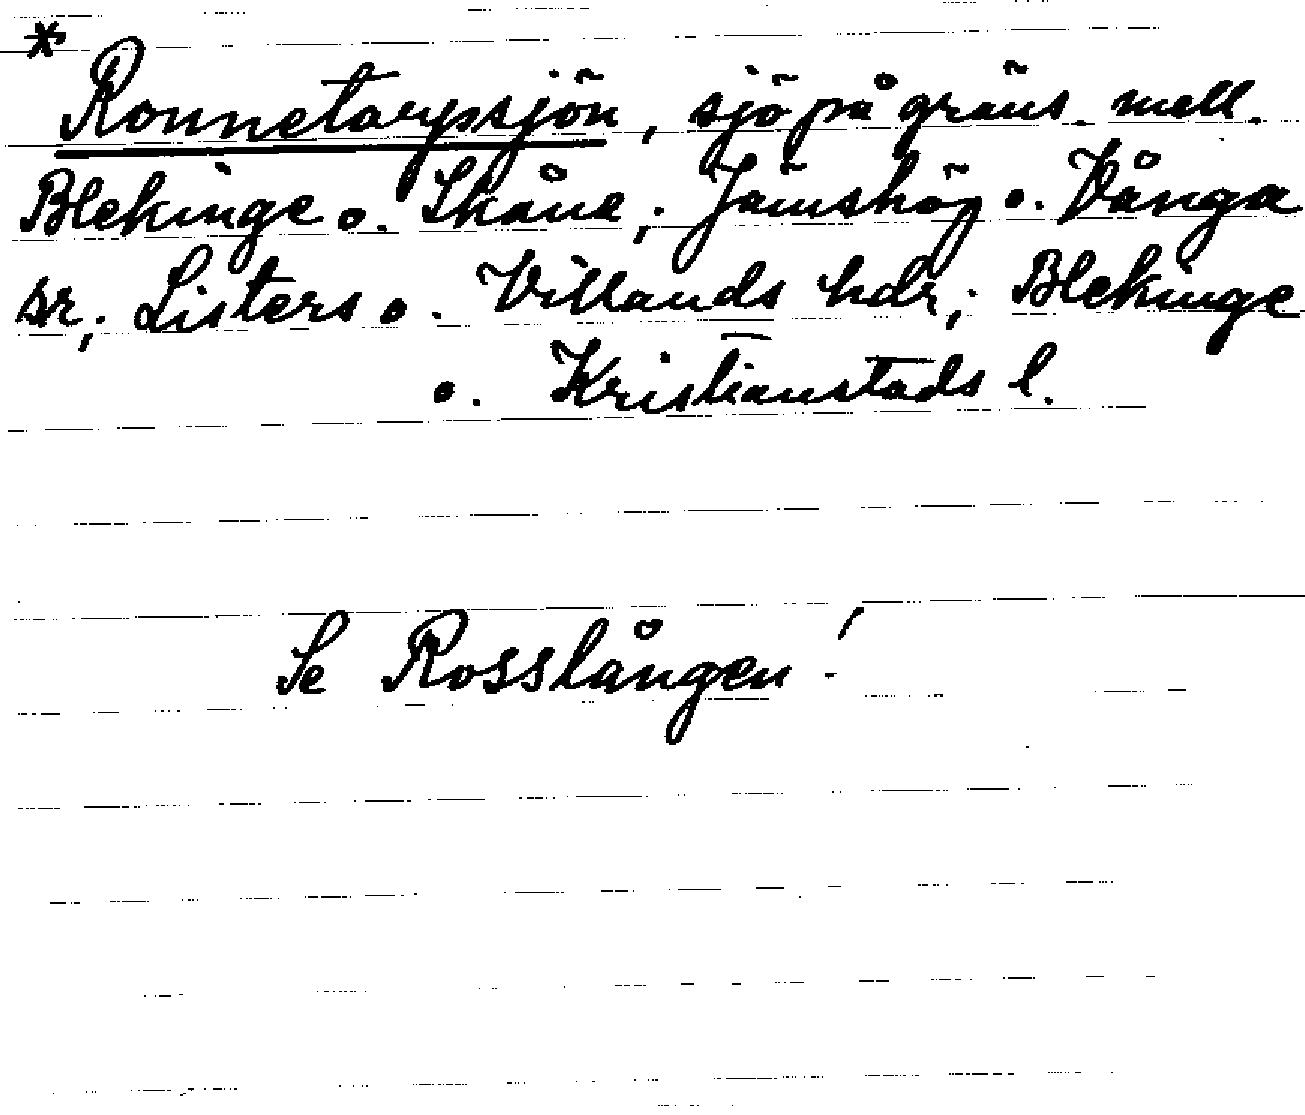 *
Ronnetorpssjön, sjö på gräns. mell.
Blekinge o. Skåne, Jämshög o. Vånga
sr; Listers o. Villands hdr; Blekinge
o. Kristianstads l.
Se Rosslången!